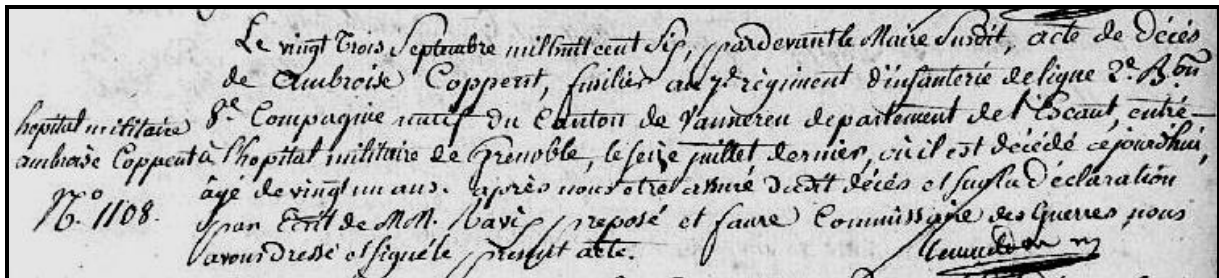 Le vingt trois Septembre mil huit cent Six, pardevant le Maire Susdit, acte de décés
de Ambroise Coppent, fusilier au 7e. régiment d'infanterie de ligne 2e. B.on
8e. Compagnie natif du Canton de Vannereu departement de l'Escaut, entré
à l'hopital militaire de Grenoble, le seize juillet dernier, où il est décédé cejourdhui,
âgé de vingt un ans. après nous etre assuré dudit décés et sur la déclaration
par Ecrit de MM. préposé et faure Commissaire des Guerres, nous
avons dressé et signé le présent acte.
hopital militaire
ambroise Coppent
N.o 1108.